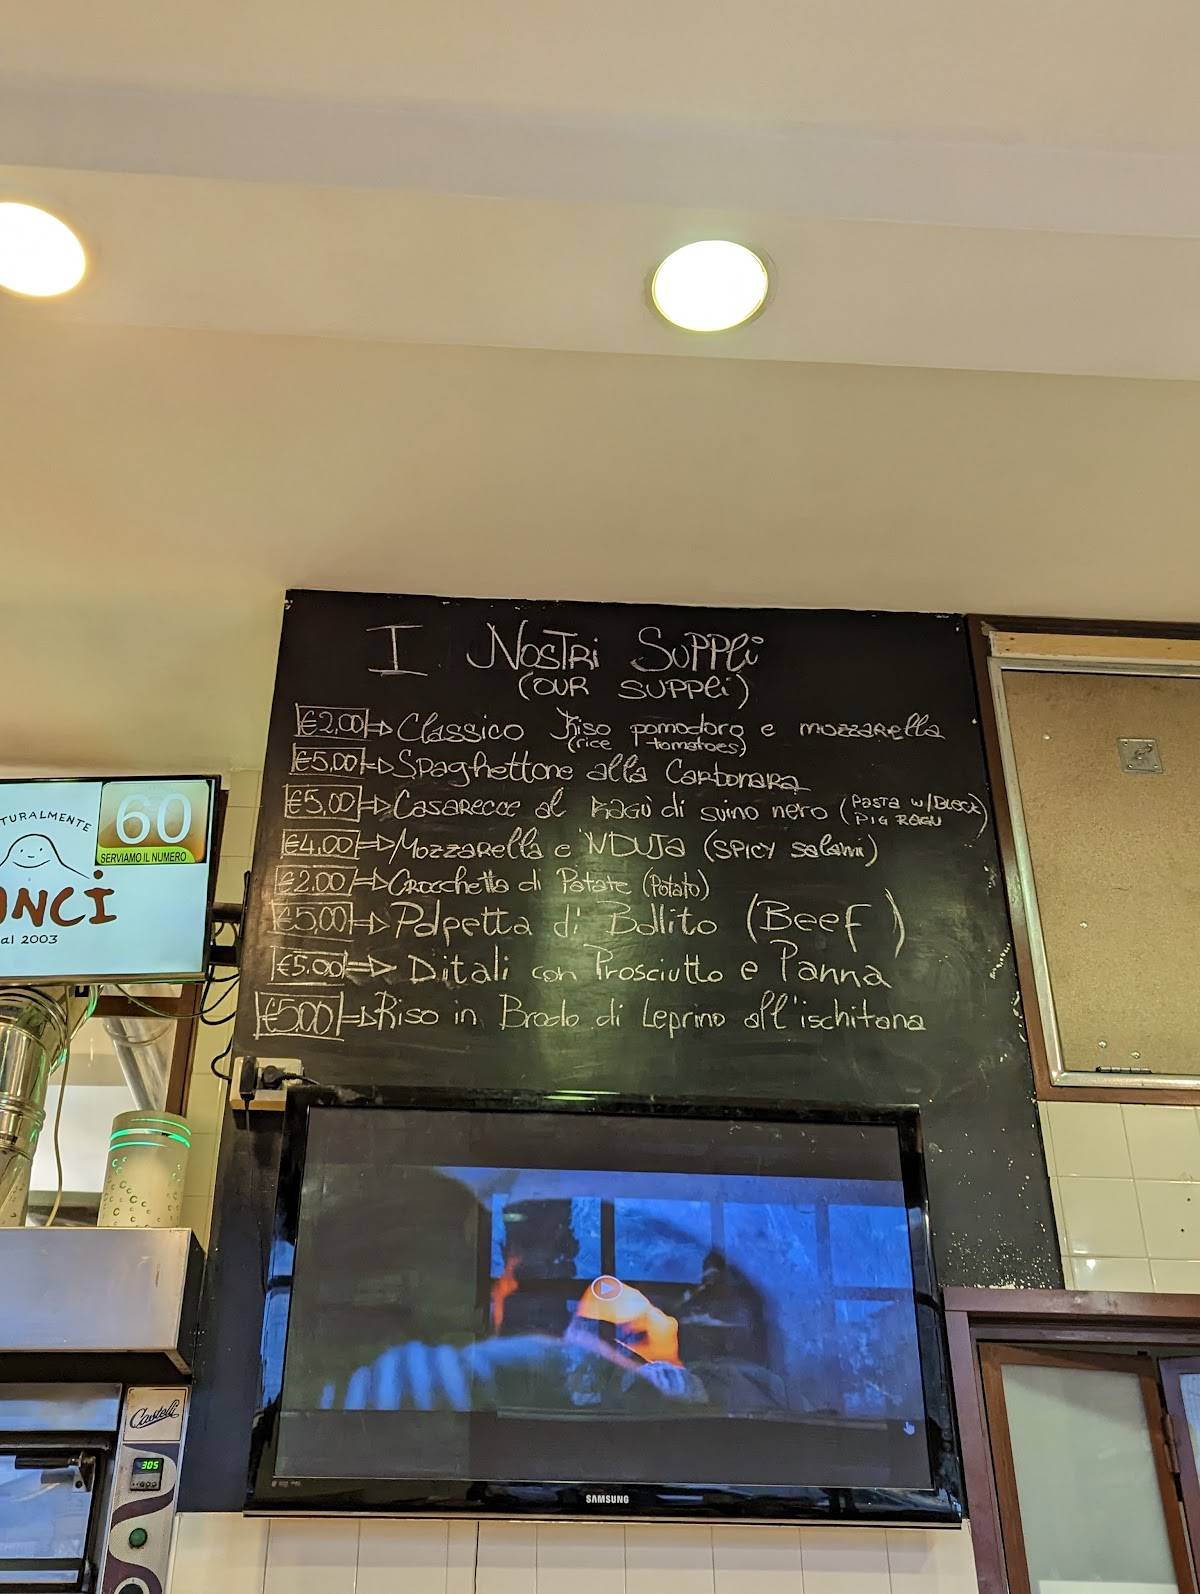 I NOSTRI SUPPLì
(OUR SUPPLì)
€2,00 Classico Riso pomodoro e mozzarella
(rice tomatoes)
€5,00 Spaghettone alla Carbonara
€5,00 Casarecce al Ragù di suino nero (PASTA W/BLACK
PIG RAGU)
€4,00 Mozzarella e 'NDUJA (SPICY salami)
€2,00 Crocchetta di Patate (Potato)
€5,00 Polpetta di Bollito (Beef)
€5,00 Ditali con Prosciutto e Panna
€5,00 Riso in Brodo di Leprino all'ischitana
TURALMENTE
60
SERVIAMO IL NUMERO
NCI
al 2003
Castelli
305
SAMSUNG